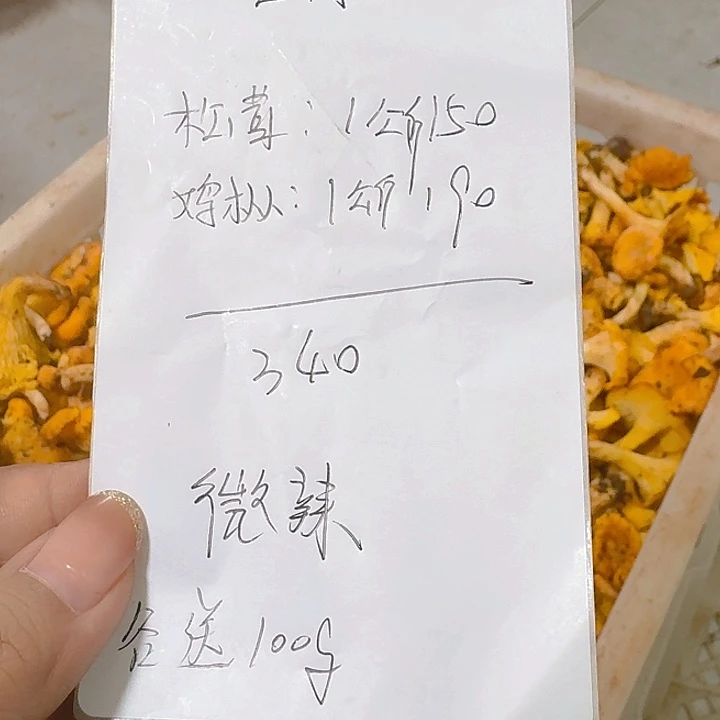 松茸：1公斤150
鸡枞：1公斤190
340
微辣
各送100g